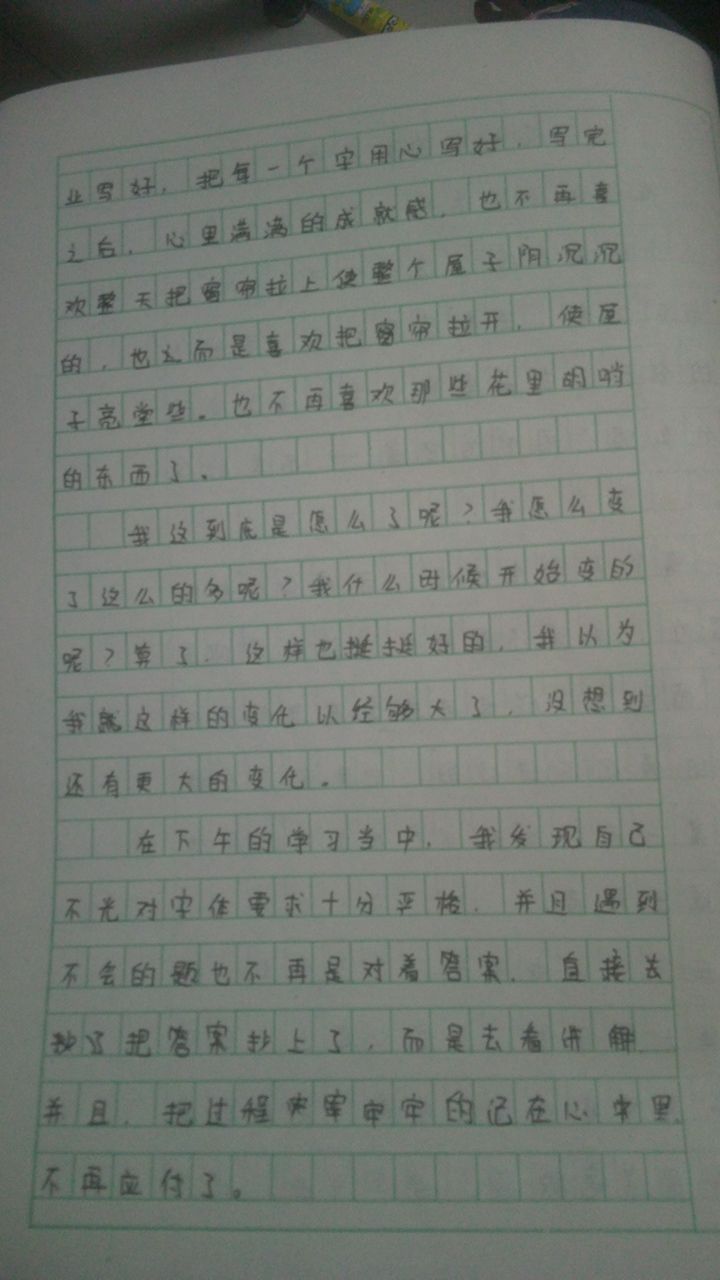 业写好，把每一个字用心写好，写完
之后，心里满满的成就感，也不再喜
欢整天把窗帘拉上使整个屋子阴沉沉
的，也而是喜欢把窗帘拉开，使屋
子亮堂些。也不再喜欢那些花里胡哨
的东西了。
我这到底是怎么了呢？我怎么变
了这么的多呢？我什么时候开始变的
呢？算了，这样也挺挺好的，我以为
我就这样的变化以经够大了，没想到
还有更大的变化。
在下午的学习当中，我发现自己
不光对字体要求十分严格，并且遇到
不会的题也不再是对着答案，直接去
抄了把答案抄上了，而是去看讲解
并且，把过程牢牢的记在心里
不再应付了。